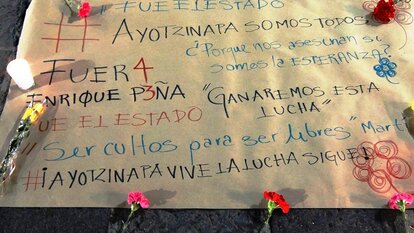 #FUE EL ESTADO
# AYOTZINAPA SOMOS TODOS
¿Porque nos asesinan si
somos la ESPERANZA?
FUER4
ENRIQUE P3ÑA "GANAREMOS ESTA
LUCHA"
FUE EL ESTADO
"Ser cultos para ser libres" Martí
#¡AYOTZINAPA VIVE LA LUCHA SIGUE!